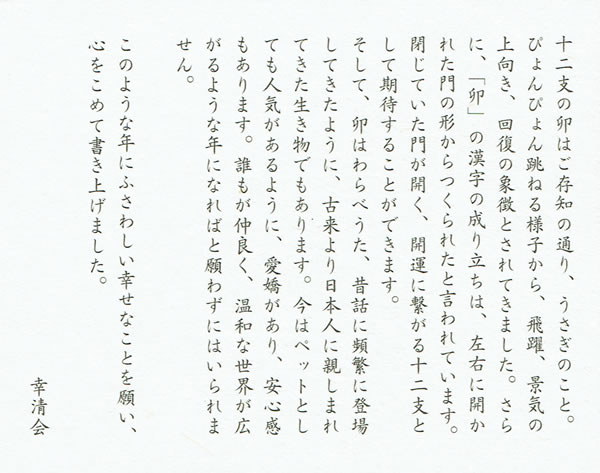 十二支の卯はご存知の通り、うさぎのこと。
ぴょんぴょん跳ねる様子から、飛躍、景気の
上向き、回復の象徴とされてきました。さら
に、「卯」の漢字の成り立ちは、左右に開か
れた門の形からつくられたと言われています。
閉じていた門が開く、開運に繋がる十二支と
して期待することができます。
そして、卯はわらべうた、昔話に頻繁に登場
してきたように、古来より日本人に親しまれ
てきた生き物でもあります。今はペットとし
ても人気があるように、愛嬌があり、安心感
もあります。誰もが仲良く、温和な世界が広
がるような年になればと願わずにはいられま
せん。
このような年にふさわしい幸せなことを願い、
心をこめて書き上げました。
幸清会